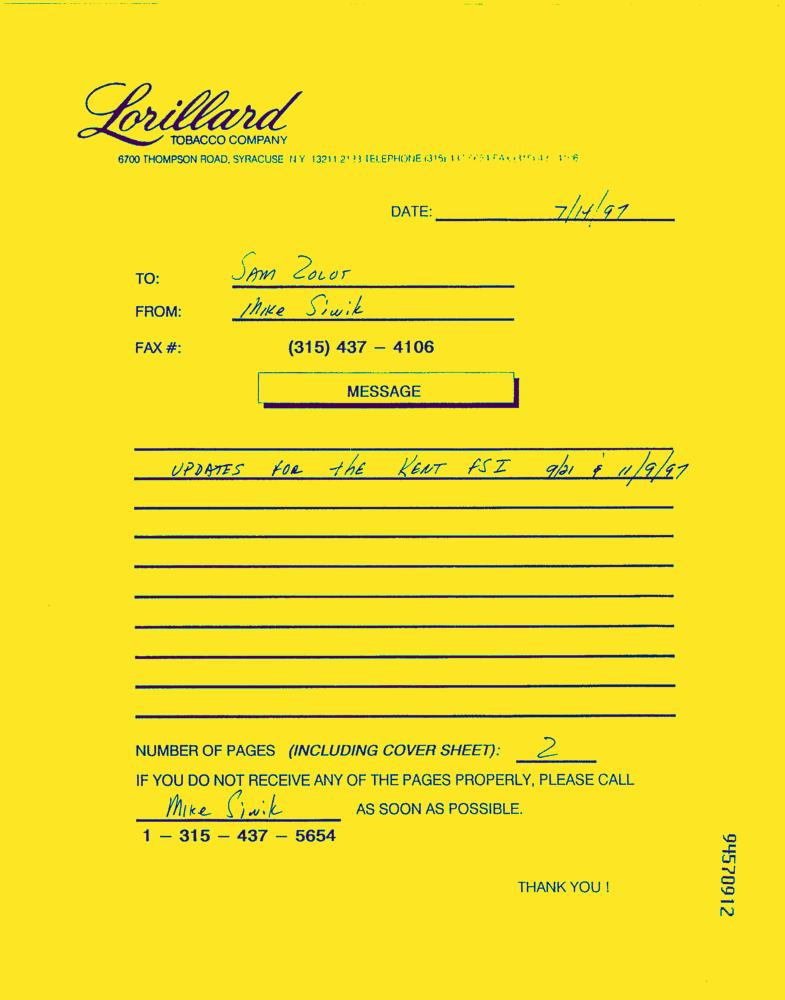 Lorillard
TOBACCO COMPANY
6700 THOMPSON ROAD, SYRACUSE N.Y. 13211 TELEPHONE (315)
DATE: 7/14/97
TO: SAM ZOLOT
FROM: Mike Siwik
FAX #: (315) 437 – 4106
MESSAGE
UPDATES FOR the KENT FSI 9/21 & 11/9/97
NUMBER OF PAGES (INCLUDING COVER SHEET): 2
IF YOU DO NOT RECEIVE ANY OF THE PAGES PROPERLY, PLEASE CALL
Mike Siwik AS SOON AS POSSIBLE.
1 – 315 – 437 – 5654
THANK YOU !
94570912